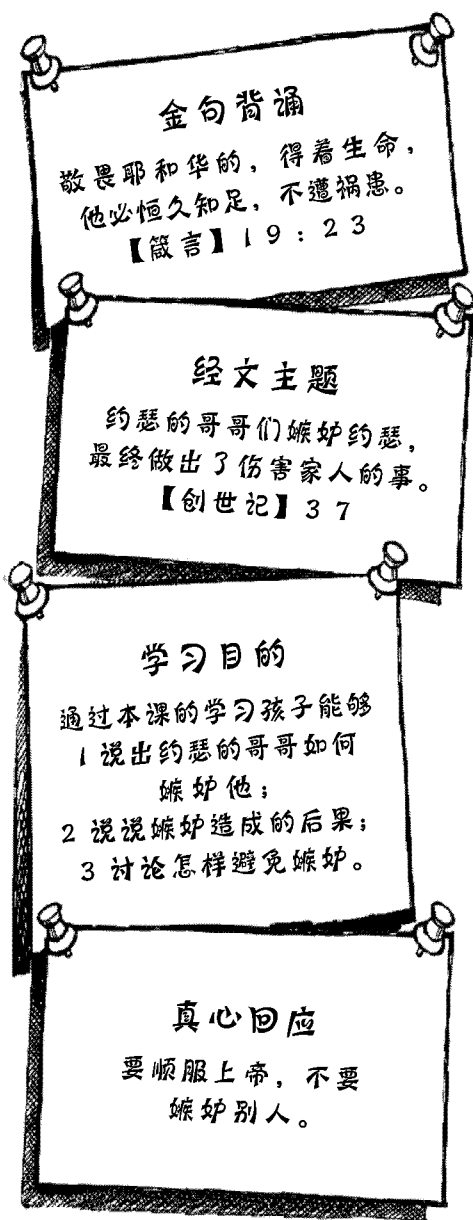 金句背诵
敬畏耶和华的，得着生命，
他必恒久知足，不遭祸患。
【箴言】19：23
经文主题
约瑟的哥哥们嫉妒约瑟，
最终做出了伤害家人的事。
【创世记】37
学习目的
通过本课的学习孩子能够
1 说出约瑟的哥哥如何
嫉妒他；
2 说说嫉妒造成的后果；
3 讨论怎样避免嫉妒。
真心回应
要顺服上帝，不要
嫉妒别人。